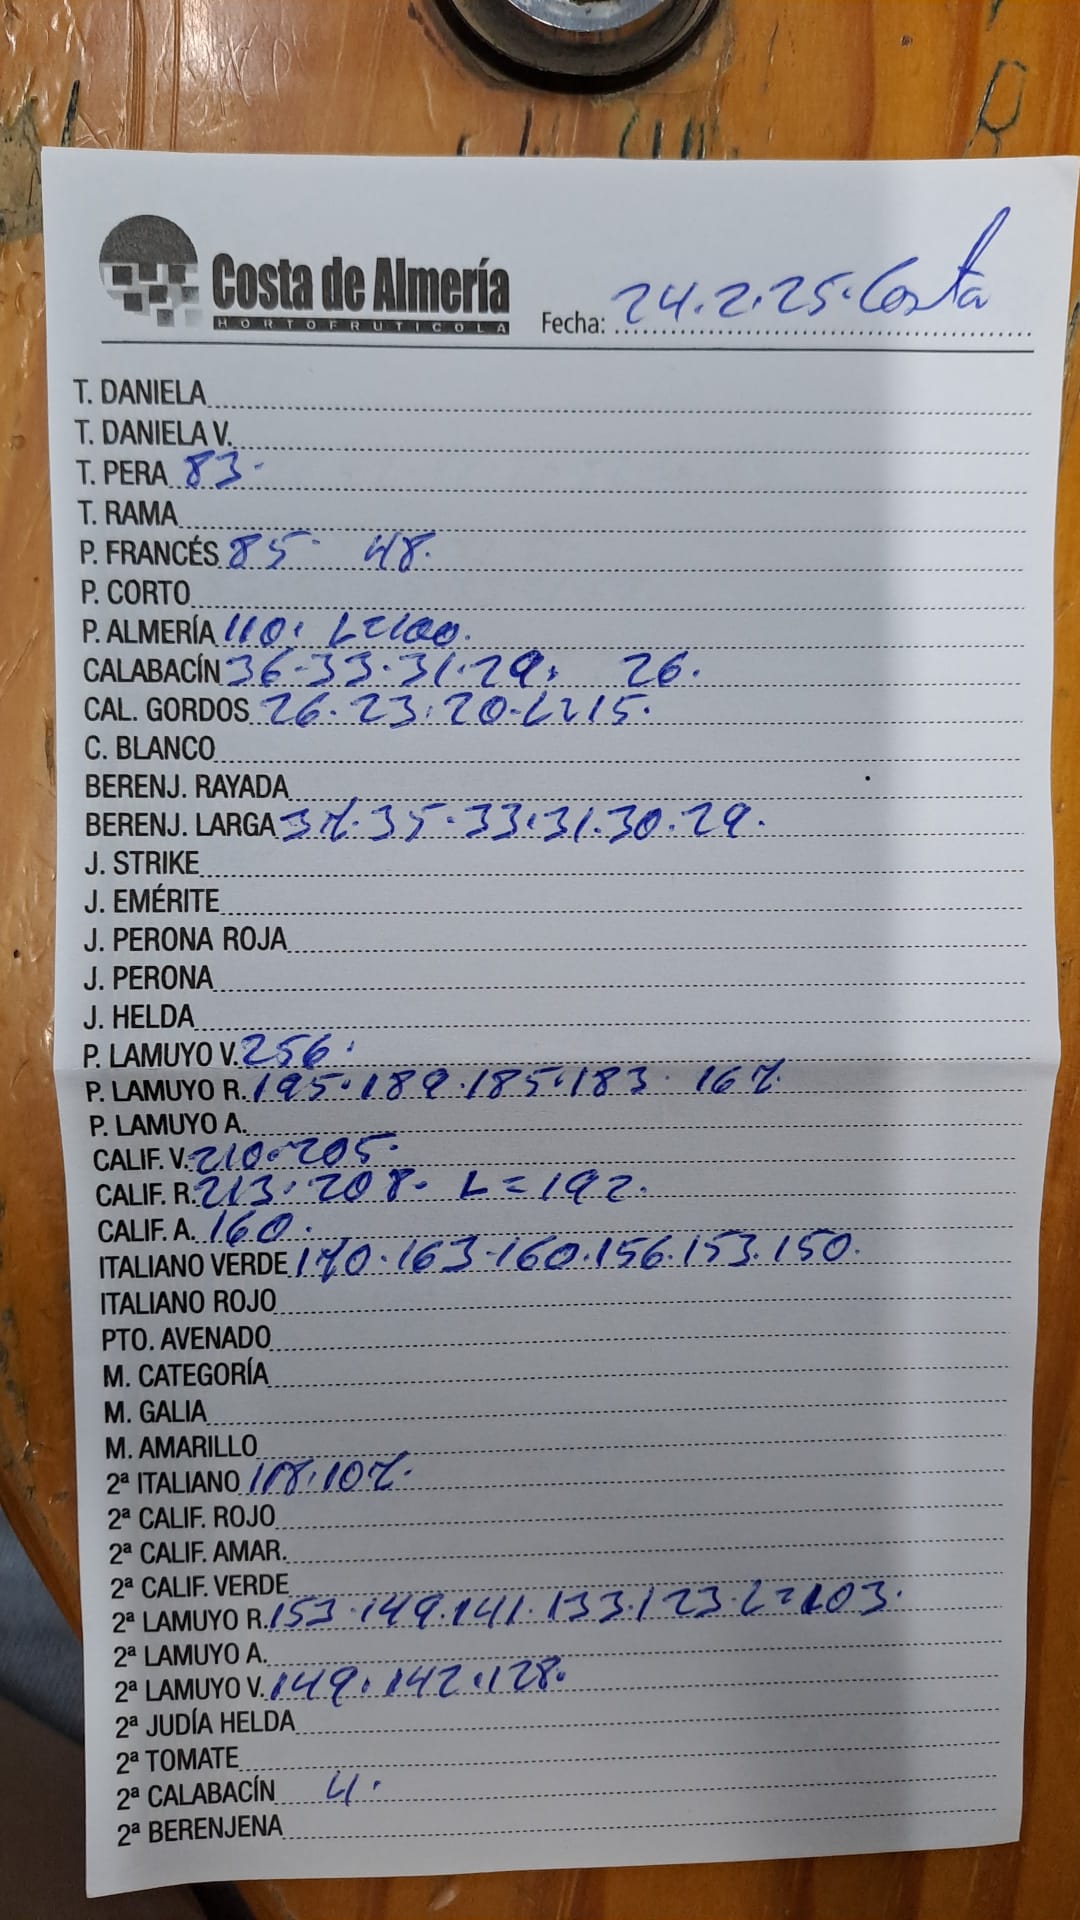 Costa de Almería
HORTOFRUTICOLA
Fecha: 24.2.25. Costa
T. DANIELA
T. DANIELA V.
T. PERA 83.
T. RAMA
P. FRANCÉS 85. 48.
P. CORTO
P. ALMERÍA 110. L=100.
CALABACÍN 36.33.31.29. 26.
CAL. GORDOS 26.23.20.L=15.
C. BLANCO
BERENJ. RAYADA
BERENJ. LARGA 37.35.33.31.30.29.
J. STRIKE
J. EMÉRITE
J. PERONA ROJA
J. PERONA
J. HELDA
P. LAMUYO V. 256.
P. LAMUYO R. 195.189.185.183. 167.
P. LAMUYO A.
CALIF. V. 210.205.
CALIF. R. 213.208. L=192.
CALIF. A. 160.
ITALIANO VERDE 170.163.160.156.153.150.
ITALIANO ROJO
PTO. AVENADO
M. CATEGORÍA
M. GALIA
M. AMARILLO
2ª ITALIANO 107.
2ª CALIF. ROJO
2ª CALIF. AMAR.
2ª CALIF. VERDE
2ª LAMUYO R. 153.149.141.133.123.L=103.
2ª LAMUYO A.
2ª LAMUYO V. 149.142.128.
2ª JUDÍA HELDA
2ª TOMATE
2ª CALABACÍN 4.
2ª BERENJENA